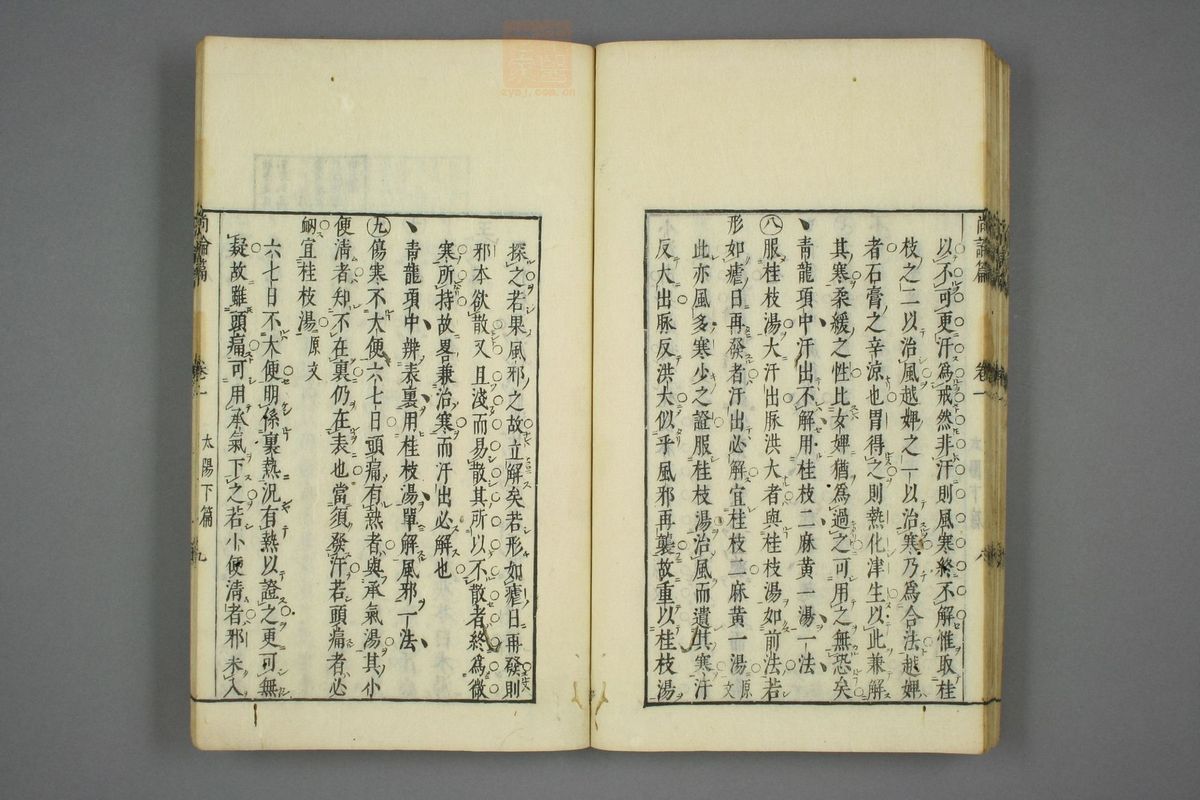 以不可更汗爲戒然非汗則風寒終不解惟取桂
枝之二以治風越婢之一以治寒乃爲合法越婢
者石膏之辛涼也胃得之則熱化津生以此兼解
其寒柔緩之性比女婢猶爲過之可用之無恐矣
青龍項中汗出不解用桂枝二麻黃一湯一法
八服桂枝湯大汗出脉洪大者與桂枝湯如前法若
形如瘧日再發者汗出必解宜桂枝二麻黃一湯原文
此亦風多寒少之證服桂枝湯治風而遺其寒汗
反大出脉反洪大似乎風邪再襲故重以桂枝湯
尚論篇 卷一 太陽下篇 八
探之若果風邪之故立解矣若形如瘧日再發則
邪本欲散又且淺而易散其所以不散者終爲微
寒所持故畧兼治寒而汗出必解也
青龍項中辨表裏用桂枝湯單解風邪一法
九傷寒不大便六七日頭痛有熱者與承氣湯其小
便清者知不在裏仍在表也當須發汗若頭痛者必
衄宜桂枝湯原文
六七日不大便明係裏熱況有熱以證之更可無
疑故雖頭痛可用承氣下之若小便清者邪未入
尚論篇 卷一 太陽下篇 九
zyyj.com.cn